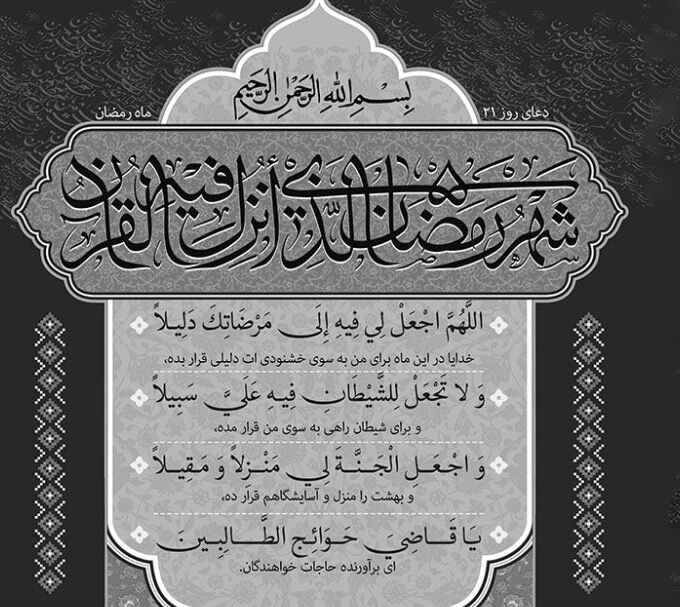 بِسْمِ اللهِ الرَّحْمٰنِ الرَّحِیمِ
دعای روز ۲۱ ماه رمضان
شَهْرُ رَمَضَانَ الَّذِي أُنْزِلَ فِيهِ الْقُرْآنُ
اللَّهُمَّ اجْعَلْ لِي فِيهِ إِلَى مَرْضَاتِكَ دَلِيلاً
خدایا در این ماه برای من به سوی خشنودی ات دلیلی قرار بده،
وَ لا تَجْعَلْ لِلشَّيْطَانِ فِيهِ عَلَيَّ سَبِيلاً
و برای شیطان راهی به سوی من قرار مده،
وَ اجْعَلِ الْجَنَّةَ لِي مَنْزِلاً وَ مَقِيلاً
و بهشت را منزل و آسایشگاهم قرار ده،
يَا قَاضِيَ حَوَائِجِ الطَّالِبِينَ
ای برآورنده حاجات خواهندگان.